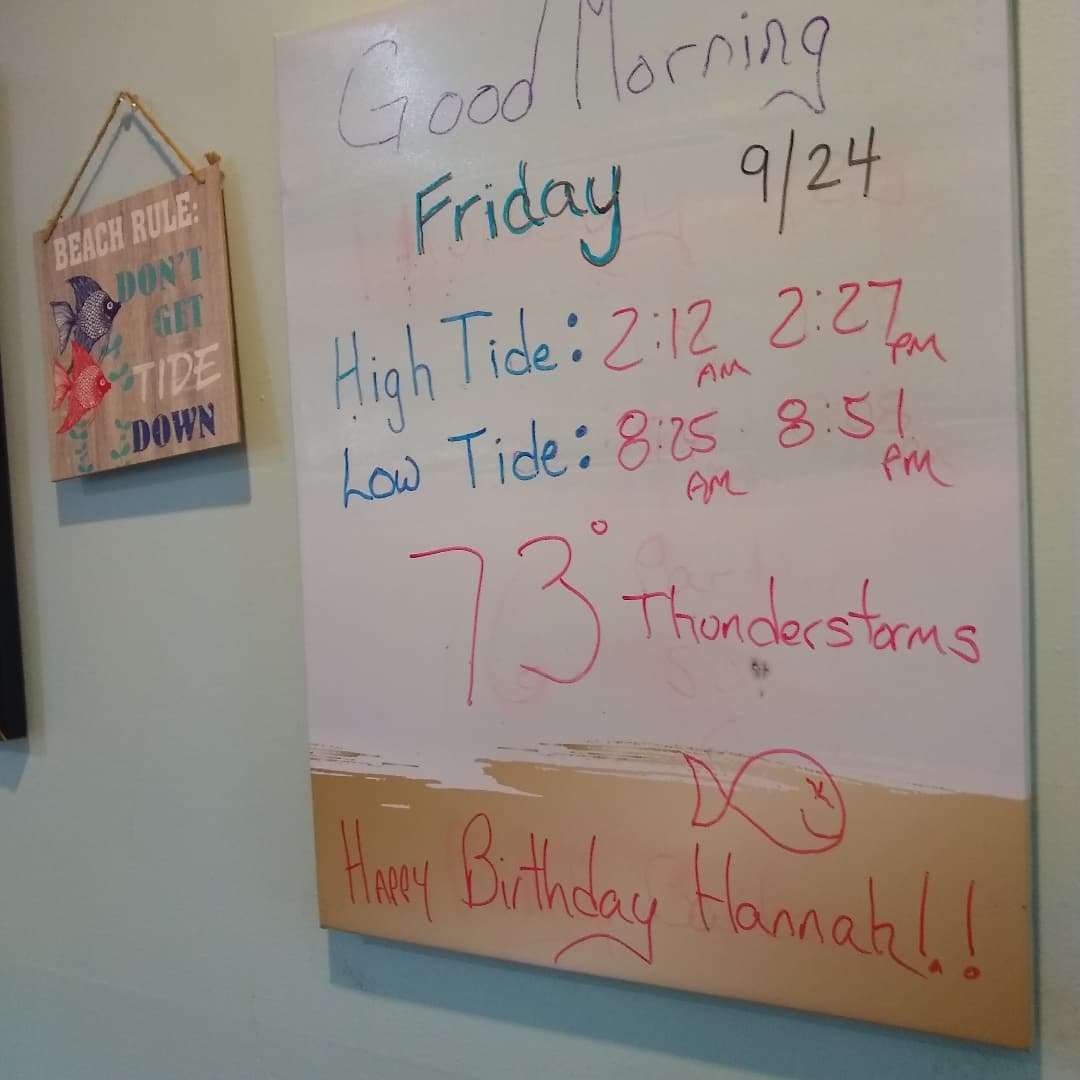 Good Morning
Friday 9/24
High Tide: 2:12 AM 2:27 PM
Low Tide: 8:25 AM 8:51 PM
73° Thunderstorms
Happy Birthday Hannah!!
BEACH RULE:
DON'T
GET
TIDE
DOWN